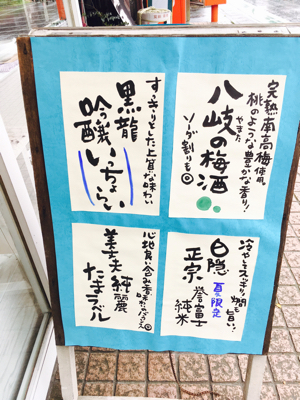 完熟南高梅使用
桃のような豊かな香り!
やまた
八岐の梅酒
ソーダ割りも◎
すっきりとした上質な味わい
黒龍
吟醸いっちょらい
冷やしてスッキリ燗も旨い!
白隠
正宗
夏限定
誉富士
純米
心地良い含み香味のバランス◎
美丈夫 純麗
たまラベル